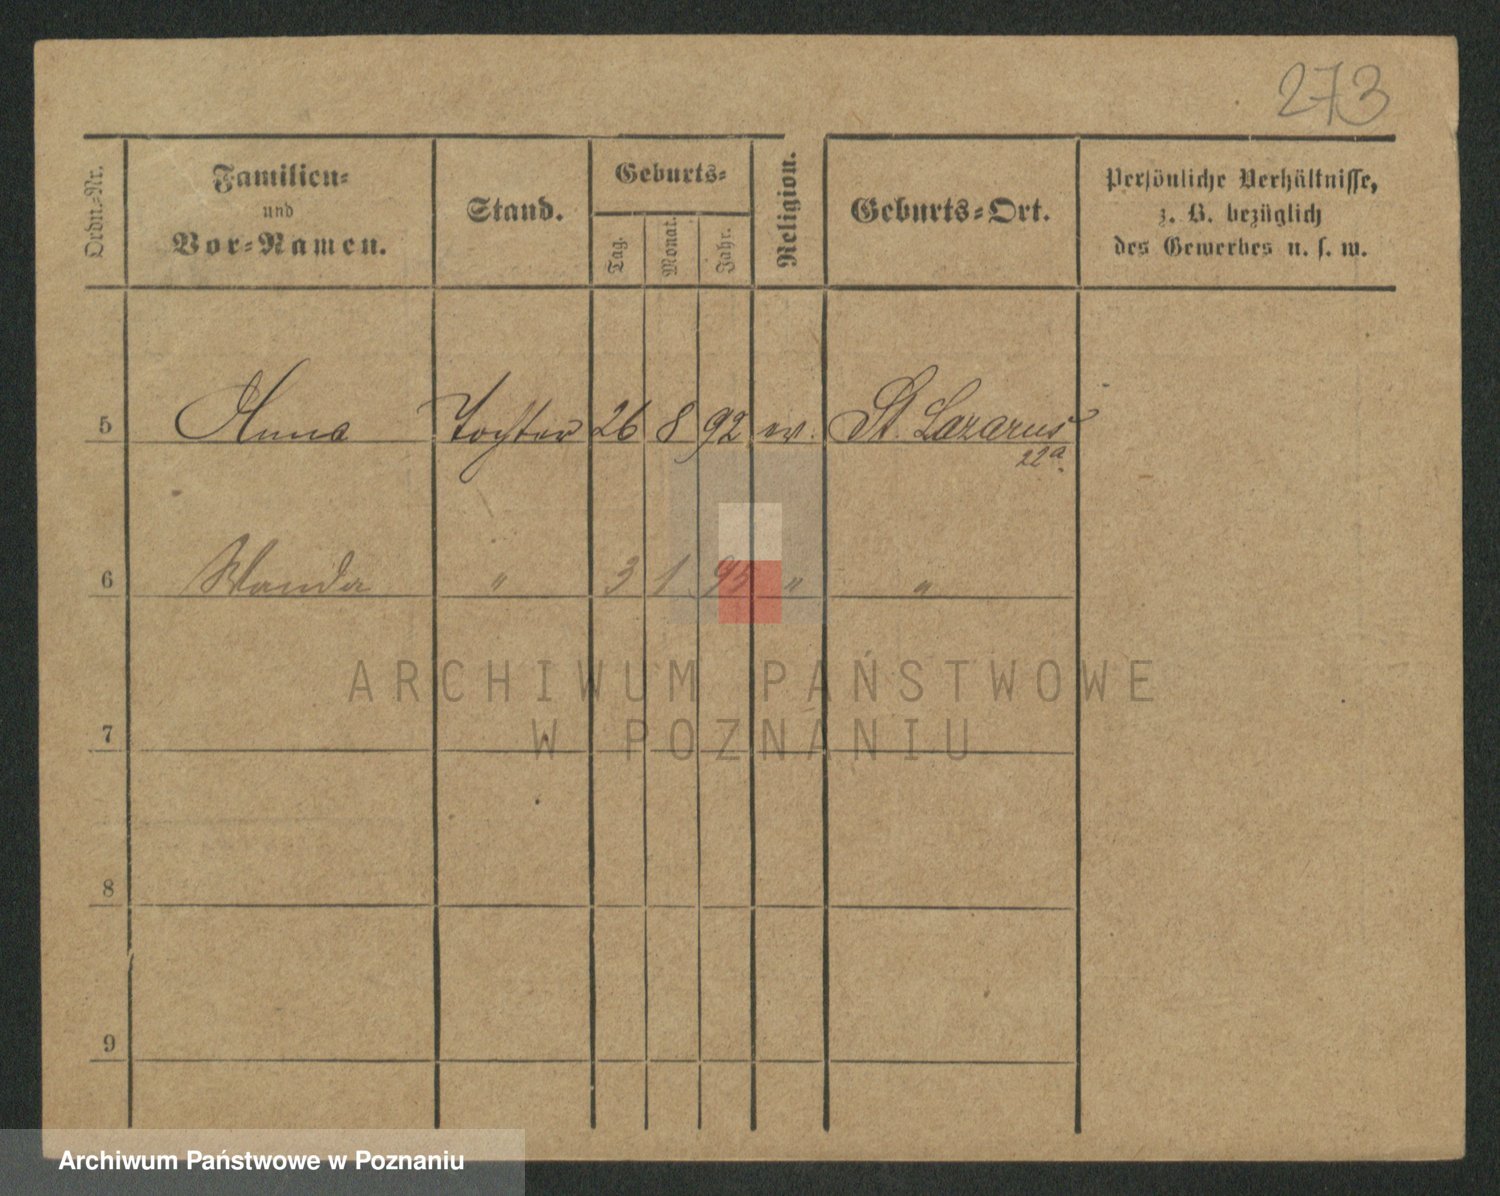 273
Ordn.-Nr.
Familien-
und
Vor-Namen.
Stand.
Geburts-
Tag.
Monat.
Jahr.
Religion.
Geburts-Ort.
Persönliche Verhältnisse,
z. B. bezüglich
des Gewerbes u. s. w.
5 Anna Tochter 26 8 92 ev. St. Lazarus
22a.
6 Wanda " 3 1 95 " "
ARCHIWUM PAŃSTWOWE
W POZNANIU
7
8
9
Archiwum Państwowe w Poznaniu